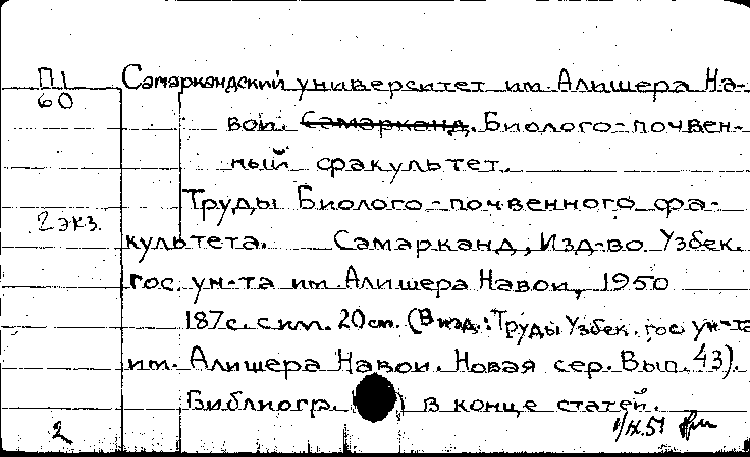 П1 Самаркандский университет им. Алишера На-
60
вои. Самарканд. Биолого-почвен-
ный факультет.
Труды Биолого-почвенного фа-
2 экз.
культета. Самарканд, Изд-во Узбек.
гос. ун-та им. Алишера Навои, 1950
187с. с ил. 20см. (В изд.: Труды Узбек. гос ун-та
им. Алишера Навои. Новая сер. Вып. 43).
Библиогр. ( ) в конце статей.
2